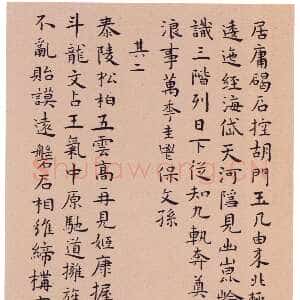 居庸碣石控胡門玉几由來北極
逶迤經海岱天河隱見出崑崙
識三階列日下泛知九軌奔
浪事萬季主鬯保文孫
其二
泰陵松柏五雲高再見姬康握
斗龍文占王氣中原馳道擁旌
不亂貽謨遠盤石相維締構